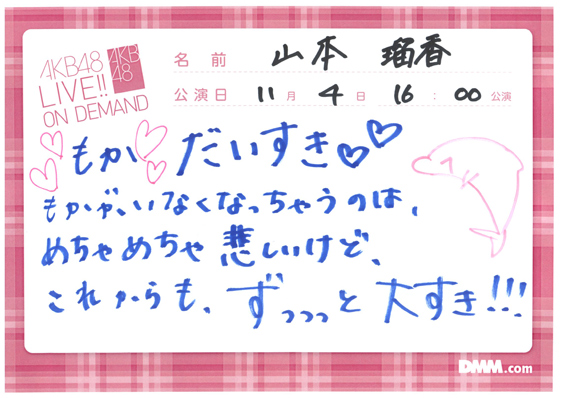 AKB48
LIVE!!
ON DEMAND
AKB
48
名前 山本 瑠香
公演日 11月4日 16:00公演
もか だいすき
もかが、いなくなっちゃうのは、
めちゃめちゃ悲しいけど、
これからも、ずっっっと大すき!!!
DMM.com